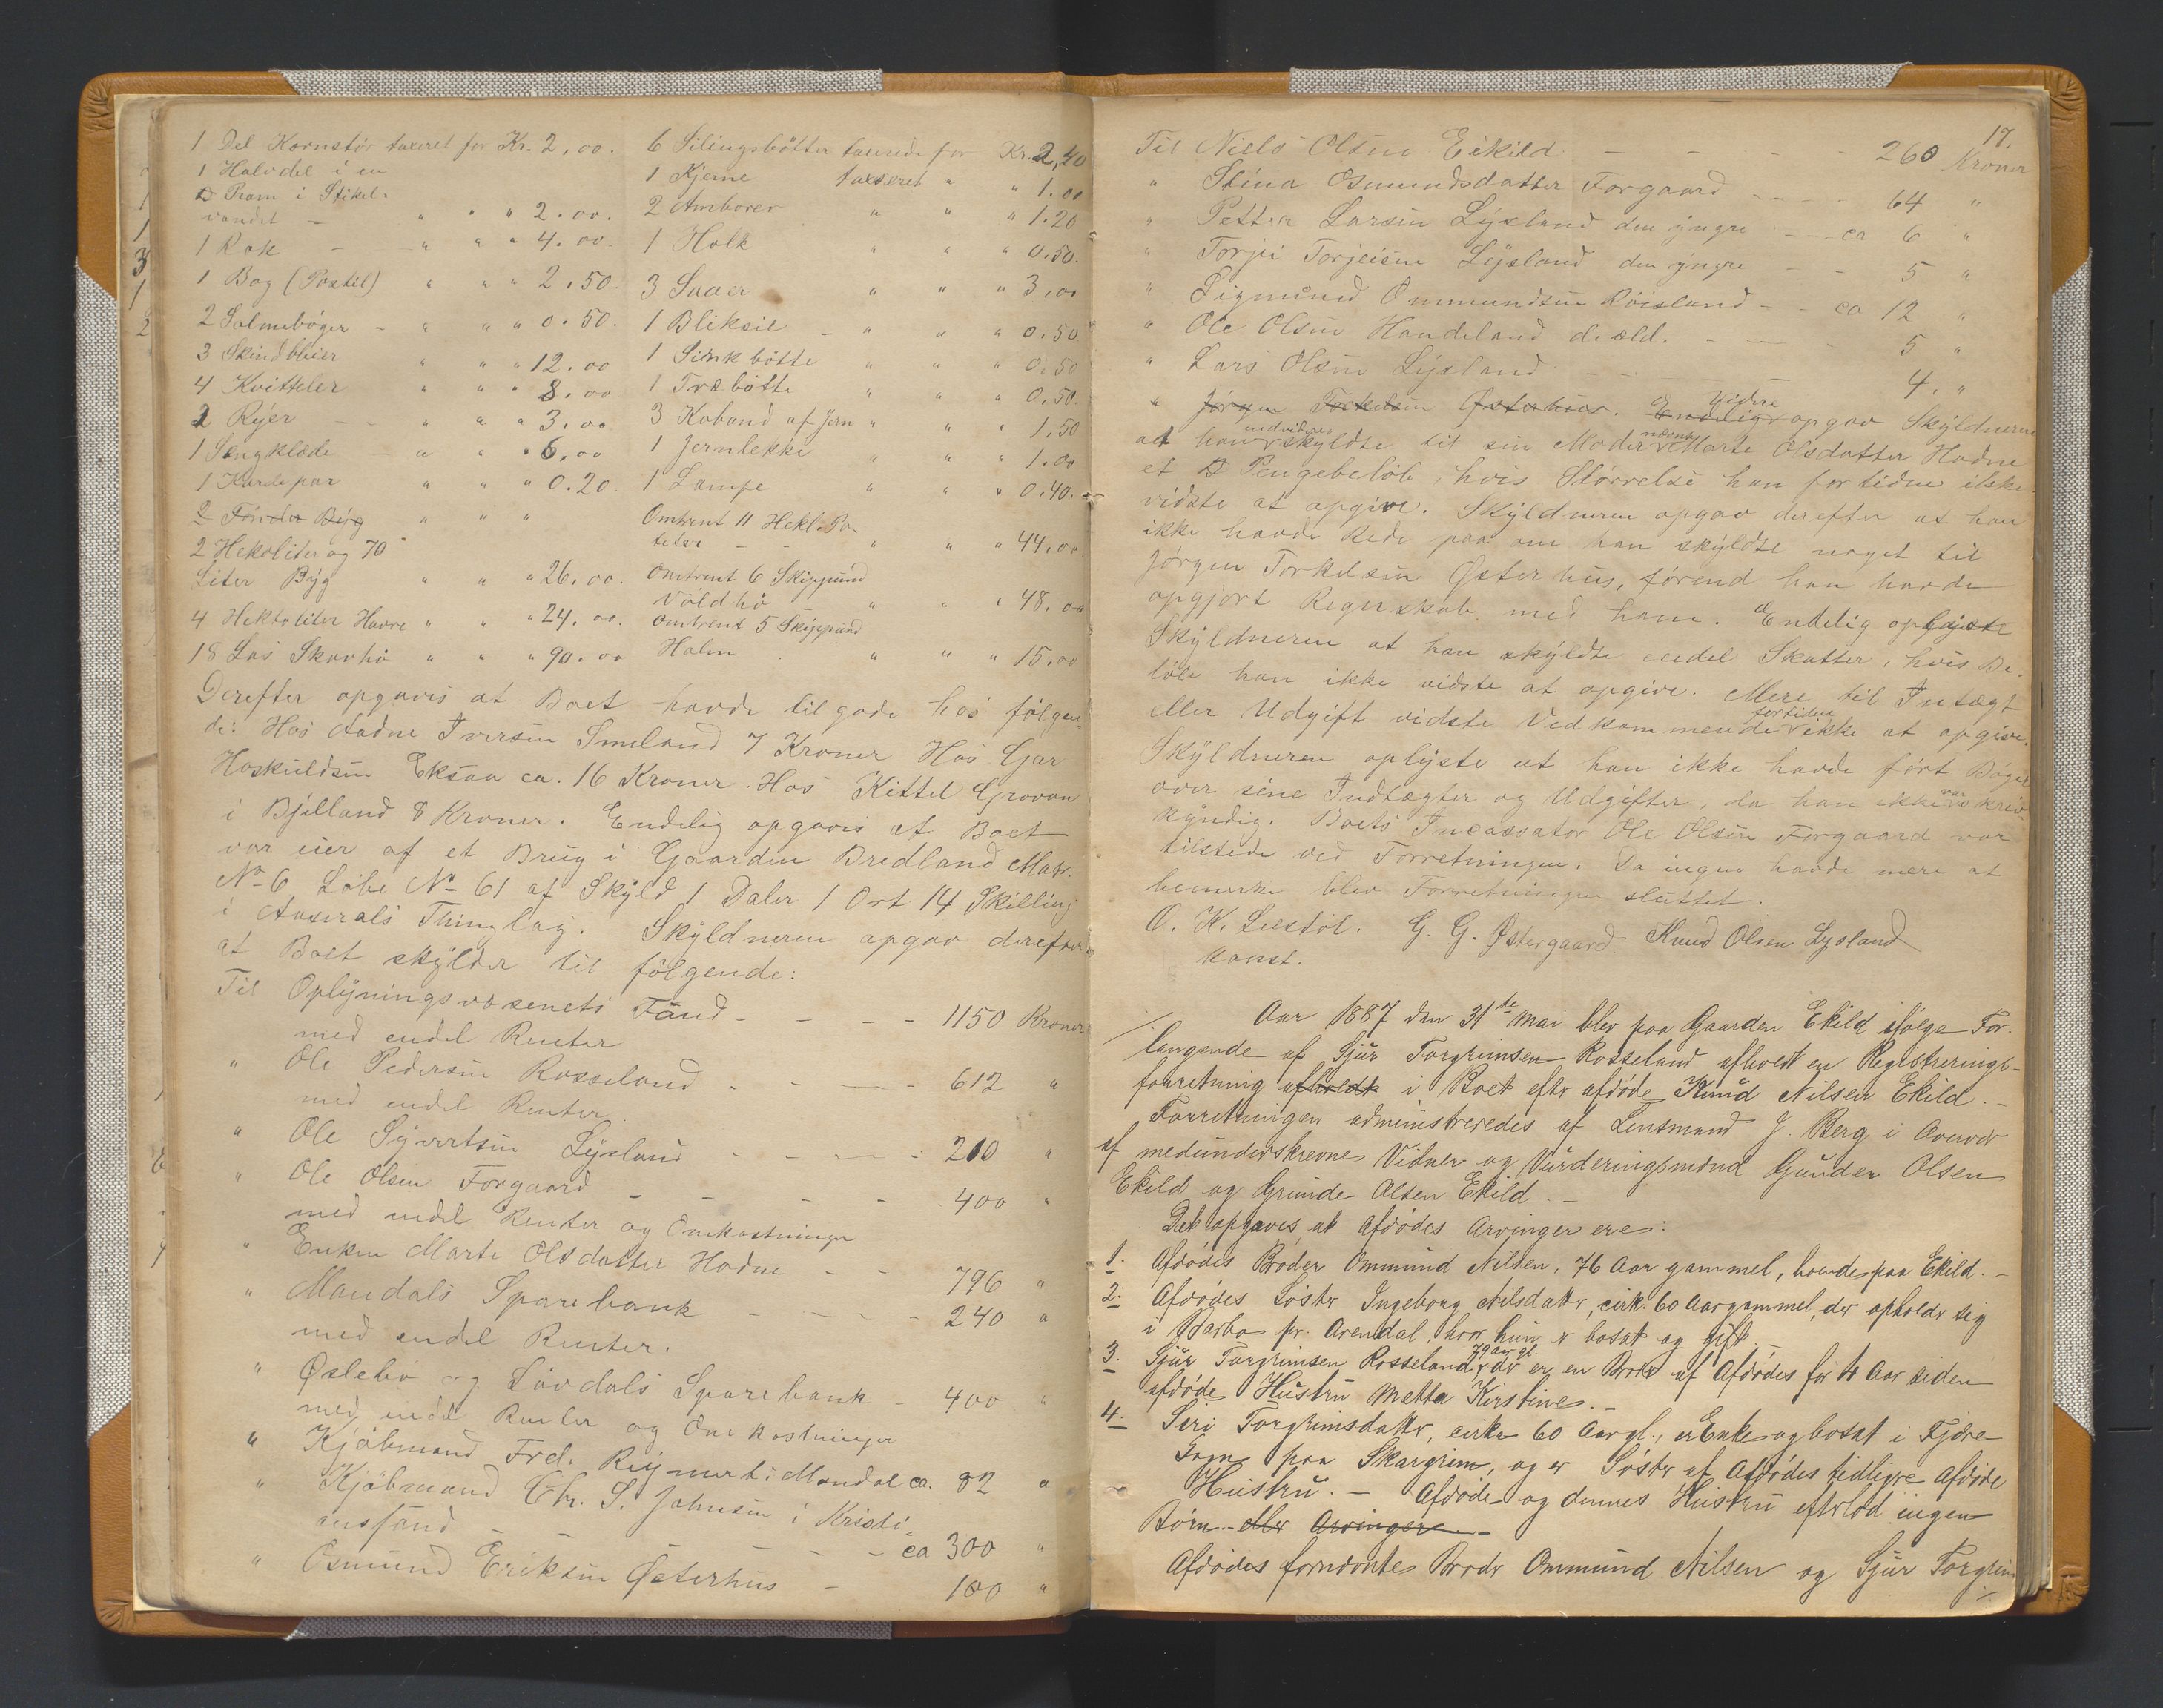 1 Del Kornstör taxeret for Kr. 2,00.
1 Halvdel i en
Pram i Stikel-
vandet - " " " 2.00.
1 Rok - " " " 4.00.
1 Bog (Postil) " " " 2,50.
2 Salmebøger - " " " 0.50.
3 Skindblæier " " " 12.00
4 Kvitteler " " " 8,00
2 Ryer - - " " " 3,00
1 Sengklæde " " " 6,00
1 Kardepar " " " 0.20
2 Tönder Byg " " "
2 Hekoliter og 70
Liter Byg " " " 26,00.
4 Hektoliter Havre " " " 24,00.
18 Las Skovhö " " " 90.00
6 Silingsbötter taxerede for Kr. 2,40
1 Kjerne taxseret " " 1.00
2 Amborer " " " 1.20
1 Holk " " " 0.50.
3 Saaer " " " 3,00
1 Bliksil - " " " 0.50
1 Sinkbötte " " " 0.50
1 Træbötte " " " 0.50.
3 Koband af Jern " " " 1,50
1 Jernlekke " " " 1.00
1 Lampe " " " 0.40.
Omtrent 11 Hekl. Po-
teter - - " " " 44,00
Omtrent 6 Skippund
Voldhö " " " 48,00
omtrent 5 Skippund
Halm " " " 15,00
Derefter opgaves at Boet havde tilgode hos følgen-
de: Hos Aadne Iversen Smeland 7 Kroner Hos Gjar
Hoskuldsen Eksaa ca. 16 Kroner. Hos Kittel Grovan
i Bjelland 8 Kroner. Endelig opgaves at Boet
var eier af et Brug i Gaarden Bredland Mat.
No 6 Löbe No 61 af Skyld 1 Daler 1 Ort 14 Skilling
i Aaserals Thinglag. Skyldneren opgav derefter
at Boet skylder til følgende:
Til Oplysningsvæsenets Fond - - - - 1150 Kroner
med endel Renter
" Ole Pedersen Rosseland - - - - 612 "
med endel Renter
" Ole Syvertsen Lysland - - - - 210 "
" Ole Olsen Forgaard - - - - 400 "
med endel Renter og Omkostninger
" Enken Marte Olsdatter Hodne - - 796 "
" Mandals Sparebank - - - - 240 "
med endel Renter.
" Øslebö og Lövdals Sparebank - 400 "
med endel Renter og Omkostninger
" Kjöbmand Fred. Reymert i Mandal ca. 82 "
" Kjöbmand Chr. S. Johnsen i Kristi-
ansand - - - - - ca 300 "
" Osmund Eriksen Østerhus - 100 "
17.
Til Niels Olsen Eikild - - - 260 Kroner
" Stina Osmundsdatter Forgaard - - - - 64 "
" Petter Larsen Lysland den yngre - - ca 6 "
" Torjei Torjeisen Lysland den yngre - - 5 "
" Sigmund Ommundsen Röisland - - ca 12 "
" Ole Olsen Handeland d. æld. - - - 5 "
" Lars Olsen Lysland - - - 4. "
" Jörgen Torkelsen Østerhus. Endelig Videre opgav Skyldneren
at han endvidere skyldte til sin Moder nævnte Marte Olsdatter Hodne
et Pengebelöb, hvis Störrelse han for tiden ikke
vidste at opgive. Skyldneren opgav derefter at han
ikke havde Rede paa om han skyldte noget til
Jörgen Torkelsen Østerhus, förend han havde
opgjort Regnskab med ham. Endelig oplyste
Skyldneren at han skyldte endel Skatter, hvis Be-
löb han ikke vidste at opgive. Mere til Intægt
eller Udgift vidste Vedkommende fortiden ikke at opgive.
Skyldneren oplyste at han ikke havde fört Böger
over sine Indtægter og Udgifter, da han ikke var skriv
kyndig. Boets Incassator Ole Olsen Forgaard var
tilstede ved Forretningen. Da ingen havde mere at
bemerke blev Forretningen sluttet.
O. K. Liestöl. G. G. Østergaard. Knud Olsen Lysland
konst.
Aar 1887 den 31te Mai blev paa Gaarden Ekild ifölge For-
langende af Sjur Torgrimsen Rosseland afholdt en Registrerings-
forretning afholdt i Boet efter afdöde Knud Nilsen Ekild.-
Forretningen administreredes af Lensmand J. Berg i Overvær
af medunderskrevne Vidner og Vurderingsmænd Gunder Olsen
Ekild og Grunde Olsen Ekild.-
Det opgaves, at afdödes Arvinger ere:
1. Afdödes Broder Ommund Nilsen, 76 Aar gammel, boende paa Ekild.-
2. Afdödes Söster Ingeborg Nilsdatter, cirk. 60 Aar gammel, der opholder sig
i Barbo pr. Arendal, hvor hun er bosat og gift.
3. Sjur Torgrimsen Rosseland, 79 Aar gl. der er en Broder af Afdödes for 4 Aar siden
afdöde Hustru Metta Kirstine.-
4. Siri Torgrimsdatter, cirka 60 Aar gl., er Enke og bosat i Fjære
Sogn paa Skargrim, og er Söster af Afdödes tidligere afdöde
Hustru.- Afdöde og dennes Hustru efterlod ingen
Börn.- eller Arvinger.-
Afdödes fornævnte Broder Ommund Nilsen og Sjur Torgrim